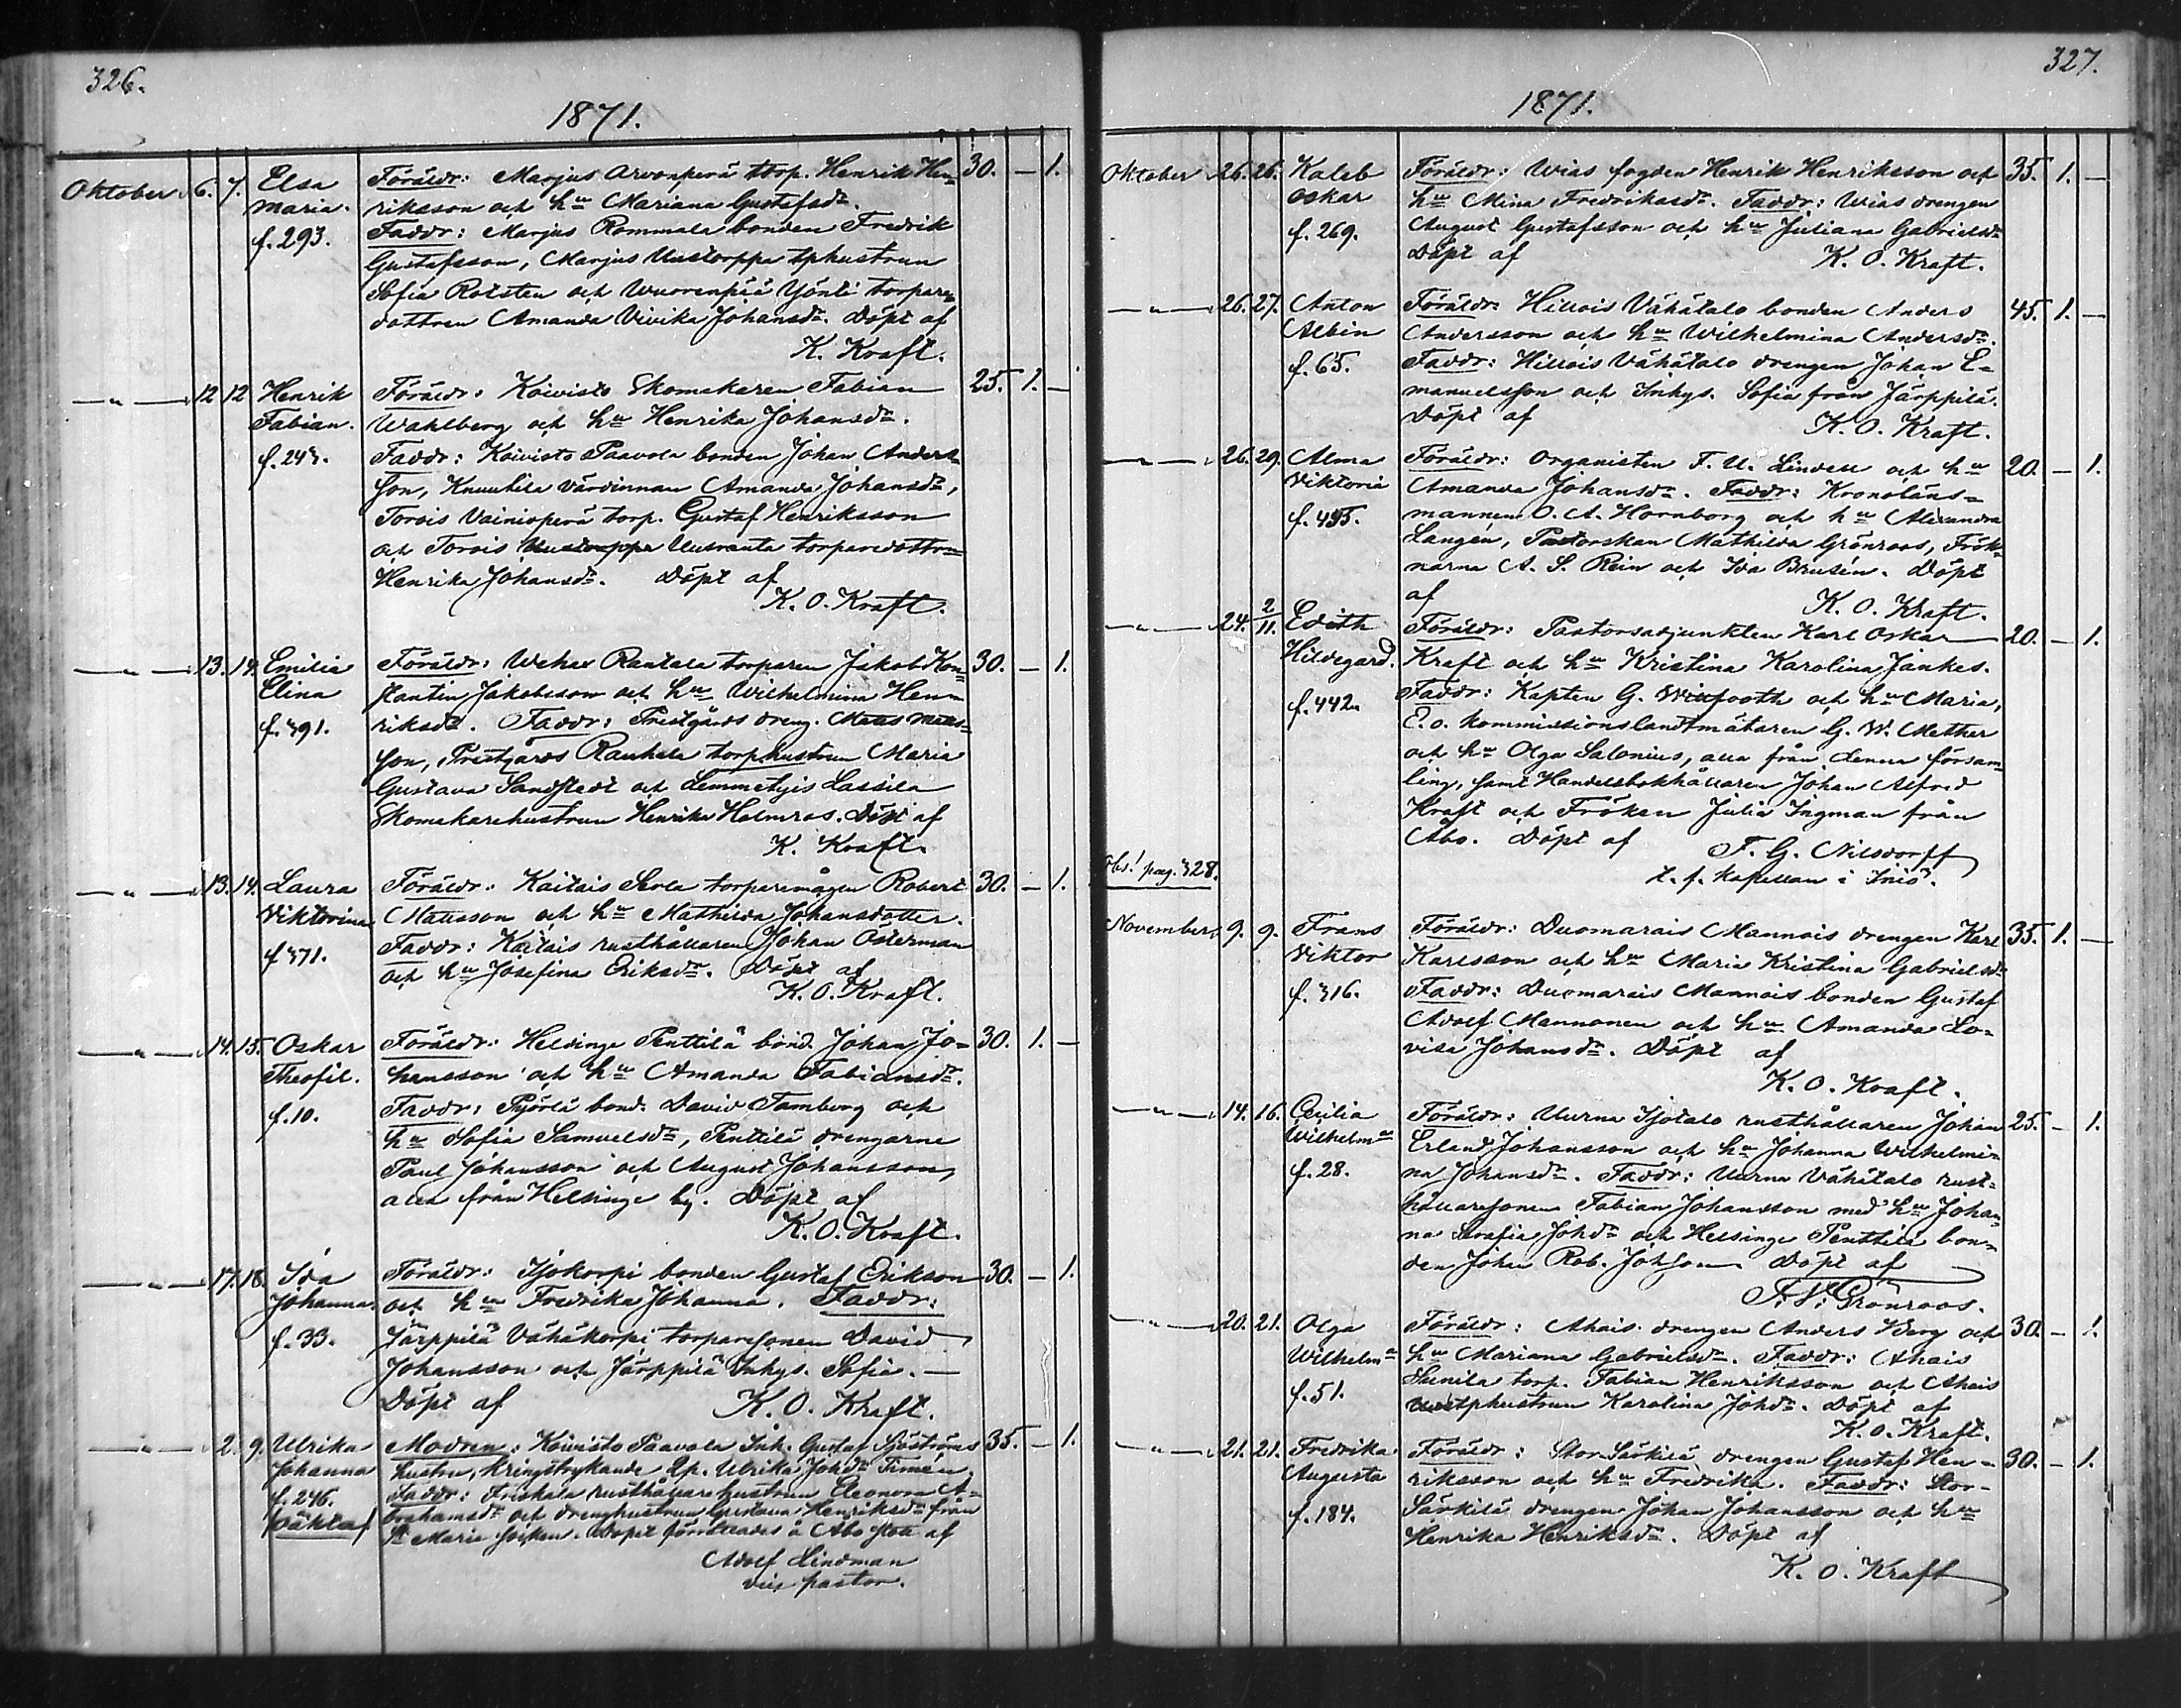 326.
1871.
Oktober 6. 7. Elsa Föräldr: Marjus Arvonperä torp. Henrik Hen= 30. — 1.
Maria. riksson och hu Mariana Gustafsdr.
f. 293. Faddr: Marjus Rommala bonden Fredrik
Gustafsson, Marjus Uustorppa tphustrun
Sofia Rolsten och Wuorenpää Yönti torpare
dottren Amanda Vivika Johansdr. Döpt af
K. Kraft.
—"— 12 12 Henrik Föräldr: Koivisto Skomakaren Fabian 25. 1. —
Fabian. Wahlberg och hu Henrika Johansdr.
f. 243. Faddr: Koivisto Paavola bonden Johan Anders=
son, Knuutila värdinnan Amanda Johansdr,
Torois Vainionperä torp. Gustaf Henriksson
och Torois Uusranta torparedottren
Henrika Johansdr. Döpt af
K. O. Kraft.
—"— 13. 14. Emilia Föräldr: Wehas Rantala torparen Jakob Kon= 30. — 1.
Elina stantin Jakobsson och hu Wilhelmina Hen=
f. 391. riksdr. Faddr: Prestgårds dreng. Matts Matts=
son, Prestgårds Rauhala torphustrun Maria
Gustava Sandstedt och Lemmetyis Lassila
Skomakarehustrun Henrika Holmros. Döpt af
K. Kraft.
—"— 13. 14. Laura Föräldr: Kailais Serla torparemågen Robert 30. — 1.
Viktorina Mattsson och hu Mathilda Johansdotter.
f 371. Faddr: Kailais rusthållaren Johan Österman
och hu Josefina Eriksdr. Döpt af
K. O. Kraft.
—"— 14. 15. Oskar Föräldr: Helsinge Penttilä bond. Johan Jo= 30. 1. —
Theofil. hansson och hu Amanda Fabiansdr.
f. 10. Faddr: Pyörlä bond. David Tamberg och
hu Sofia Samuelsdr, Penttilä drengarne
Paul Johansson och August Johansson,
alla från Helsinge by. Döpt af
K. O. Kraft.
—"— 17. 18. Ida Föräldr: Ijokorpi bonden Gustaf Erikson 30. — 1.
Johanna och hu Fredrika Johanna. Faddr:
f. 33. Järppilä Vähäkorpi torparesonen David
Johansson och Järppilä Inhys. Sofia. —
Döpt af K. O. Kraft.
—"— 2. 9. Ulrika Modren: Koivisto Paavola Inh. Gustaf Sjöströms 35. — 1.
Johanna hustru, kringstrykande Ulrika Johdr Timén
f. 246. Faddr: Friskala rusthållarehustrun Eleonora A=
brahamsdr och drenghustrun Gustava Henriksdr från
St Marie socken. Dopet förrättades i Åbo stad af
Adolf Lindman
vice pastor.
327.
1871.
Oktober 26. 26. Kaleb Föräldr: Wias fogden Henrik Henriksson och 35. 1. —
Oskar hu Mina Fredriksdr. Faddr: Wias drengen
f. 269. August Gustafsson och hu Juliana Gabrielsdr
Döpt af K. O. Kraft.
—"— 26. 27. Anton Föräldr: Hillois Vähätalo bonden Anders 45. 1. —
Albin Andersson och hu Wilhelmina Andersdr.
f. 65. Faddr: Hillois Vähätalo drengen Johan E=
manuelsson och Inhys. Sofia från Järppilä.
Döpt af K. O. Kraft.
—"— 26. 29. Alma Föräldr: Organisten F. U. Lindell och hu 20. — 1.
Viktoria Amanda Johansdr. Faddr: Kronoläns=
f. 495. mannen O. A. Hornborg och hu Alexandra
Langén, Pastorskan Mathilda Grönroos, Frök=
narna A. S. Rein och Ida Brusén. Döpt
af K. O. Kraft.
—"— 24. 2/11. Edith Föräldr: Pastorsadjunkten Karl Oskar 20. — 1.
Hildegard. Kraft och hu Kristina Karolina Jankes.
f. 442. Faddr: Kapten G. och hu Maria,
E. o. kommissionslandtmätaren G. W. Mether
och hu Olga Salonius, alla från denna försam=
ling, samt Handelsbokhållaren Johan Alfred
Kraft och Fröken Julia Ingman från
Åbo. Döpt af F. G. Nilsdorff
t. f. kapellan i Iniö.
Obs! pag. 328.
November 9. 9. Frans Föräldr: Duomarais Mannois drengen Karl 35. 1. —
Viktor Karlsson och hu Maria Kristina Gabrielsdr
f. 316. Faddr: Duomarais Mannois bonden Gustaf
Adolf Mannonen och hu Amanda Lo=
visa Johansdr. Döpt af
K. O. Kraft.
—"— 14. 16. Cecilia Föräldr: Uurna Isotalo rusthållaren Johan 25. — 1.
Wilhelma Erland Johansson och hu Johanna Wilhelmi=
f. 28. na Johansdr. Faddr: Uurna Vähätalo rust=
hållaresonen Fabian Johansson med hu Johan=
na Serafia Johdr och Helsinge Penttilä bon=
den Johan Rob. Johsson Döpt af
Grönroos.
—"— 20. 21. Olga Föräldr: Ahais drengen Anders Berg och 30. — 1.
Wilhelma hu Mariana Gabrielsdr. Faddr: Ahais
f. 51. Sunila torp. Fabian Henriksson och Ahais
tphustrun Karolina Johdr. Döpt af
K. O. Kraft.
—"— 21. 21. Fredrika Föräldr: Stor Särkilä drengen Gustaf Hen= 30. — 1.
Augusta riksson och hu Fredrika. Faddr: Stor=
f. 184. Särkilä drengen Johan Johansson och hu
Henrika Henriksdr. Döpt af
K. O. Kraft